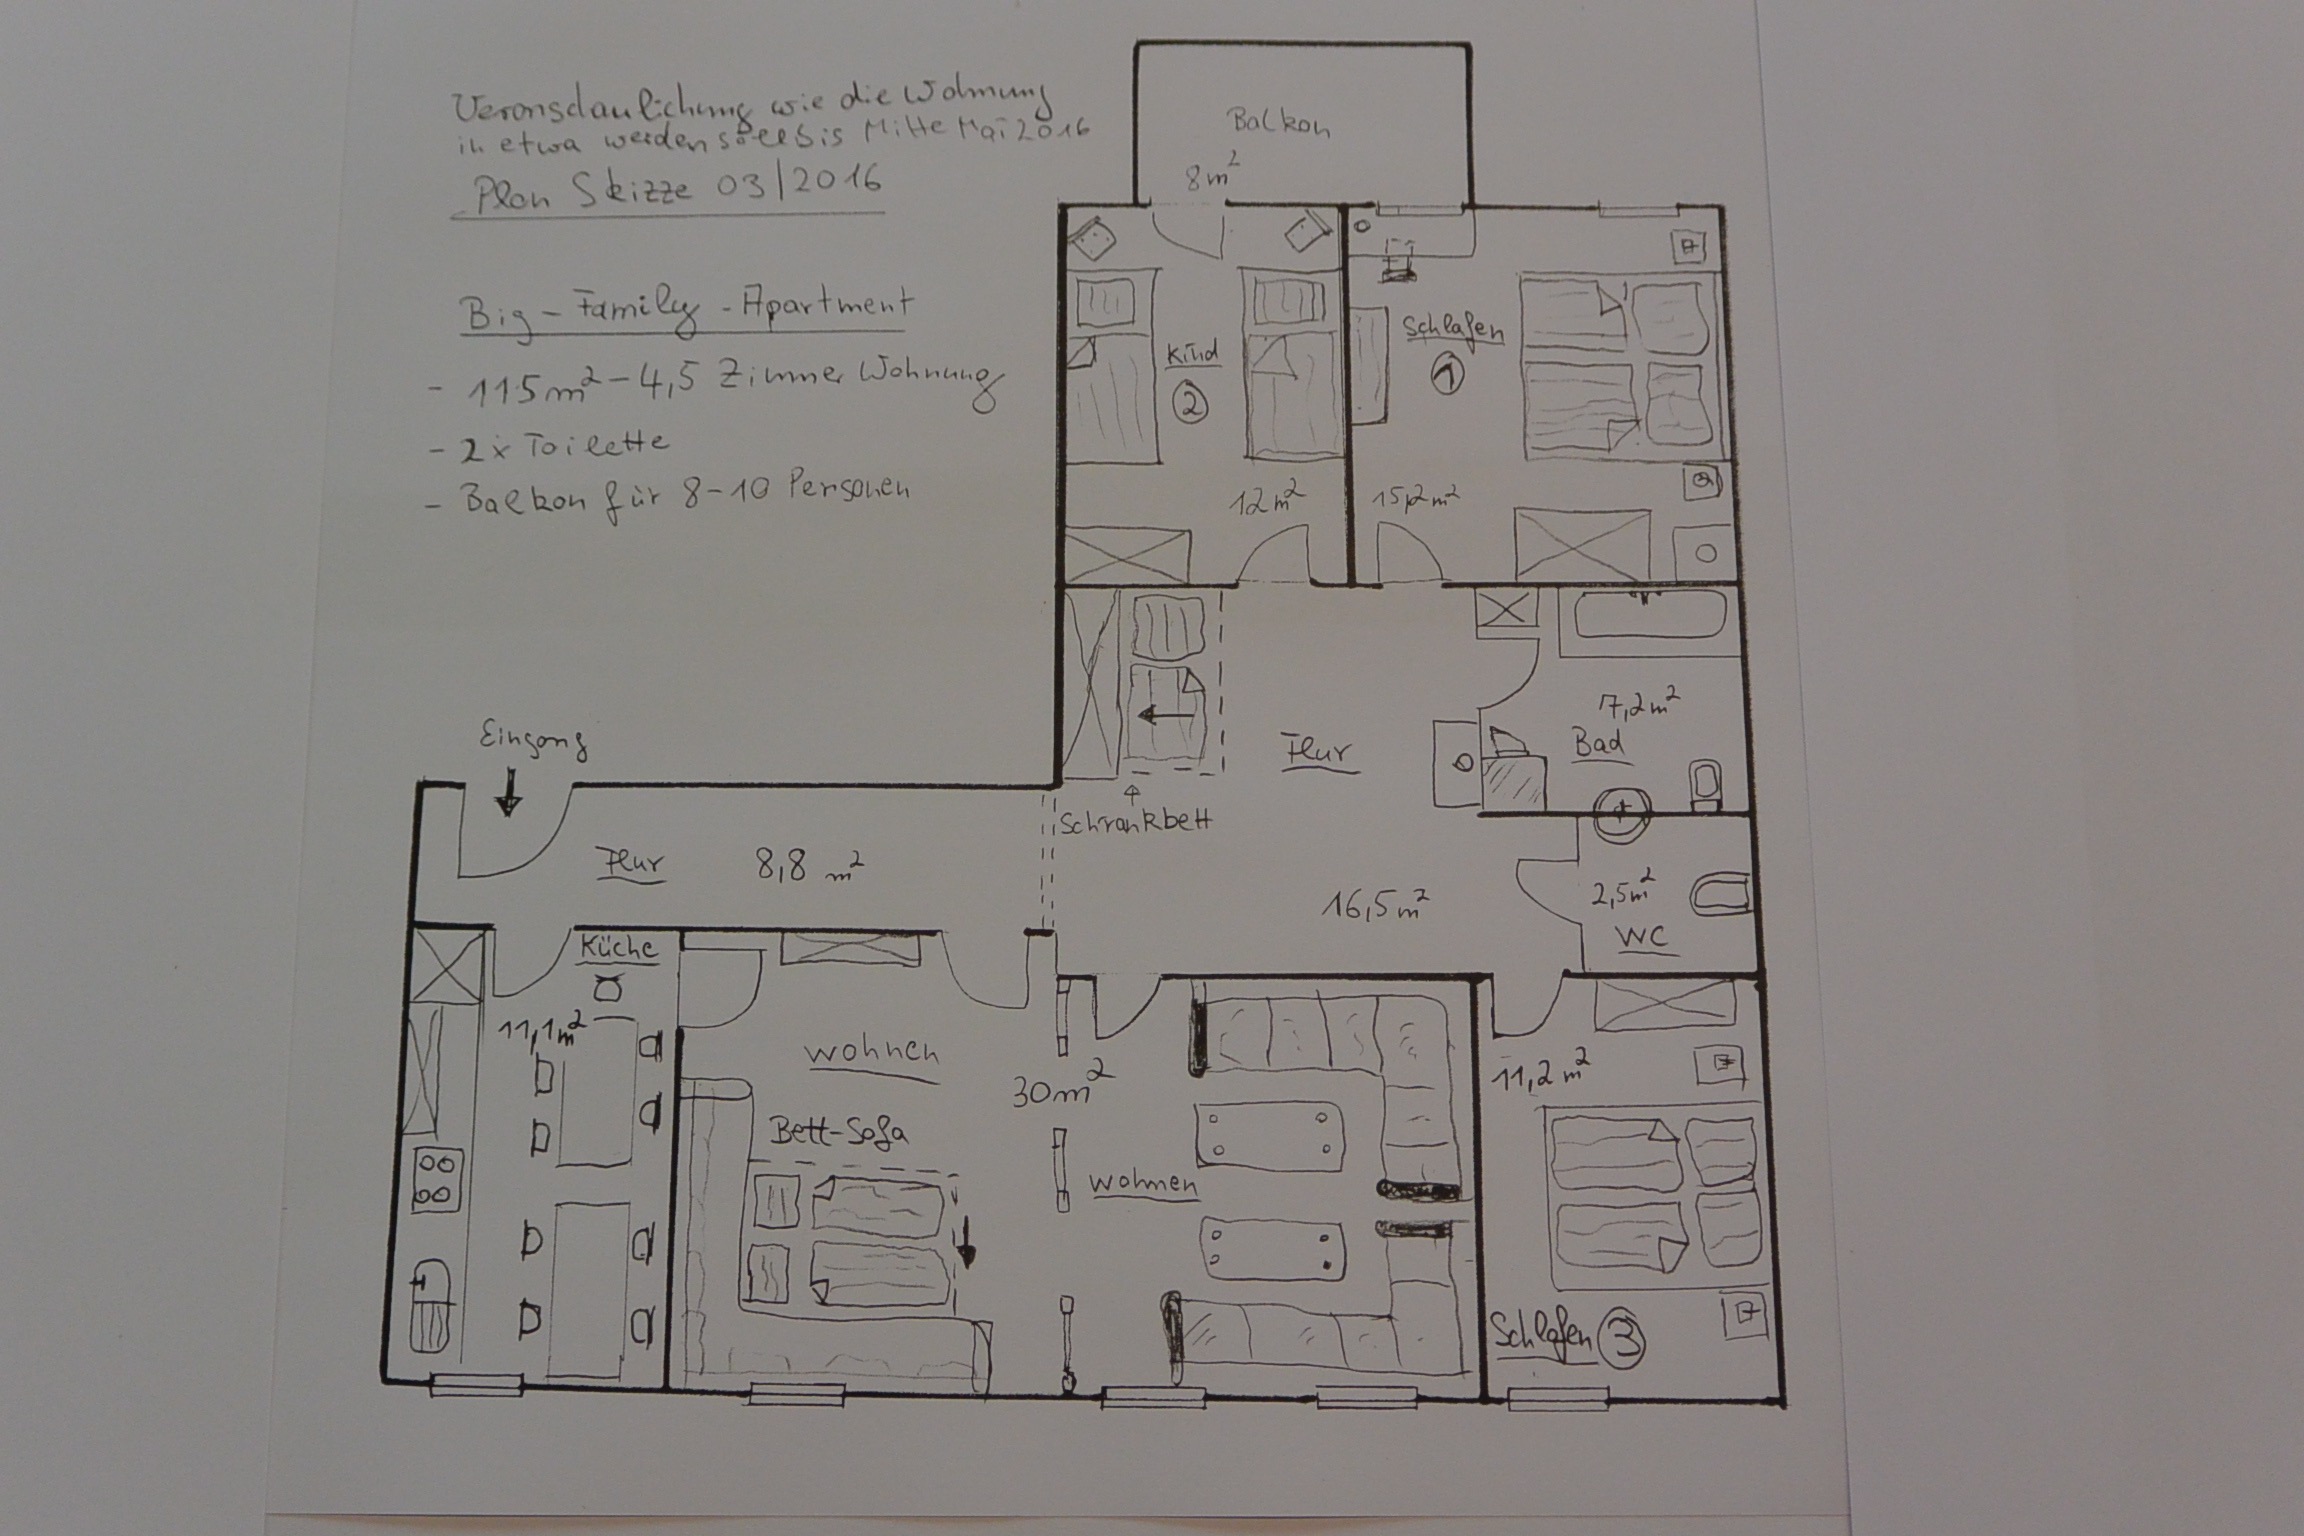 Veranschaulichung wie die Wohnung
in etwa werden soll bis Mitte Mai 2016
Plan Skizze 03/2016
Big-Family-Apartment
- 115m² - 4,5 Zimmer Wohnung
- 2x Toilette
- Balkon für 8-10 Personen
Balkon
8m²
Kind
2
12m²
Schlafen
1
15,2m²
Schrankbett
Flur
16,5m²
7,2m²
Bad
2,5m²
WC
Eingang
Flur 8,8 m²
Küche
11,1m²
Wohnen
30m²
Bett-Sofa
Wohnen
11,2m²
Schlafen 3